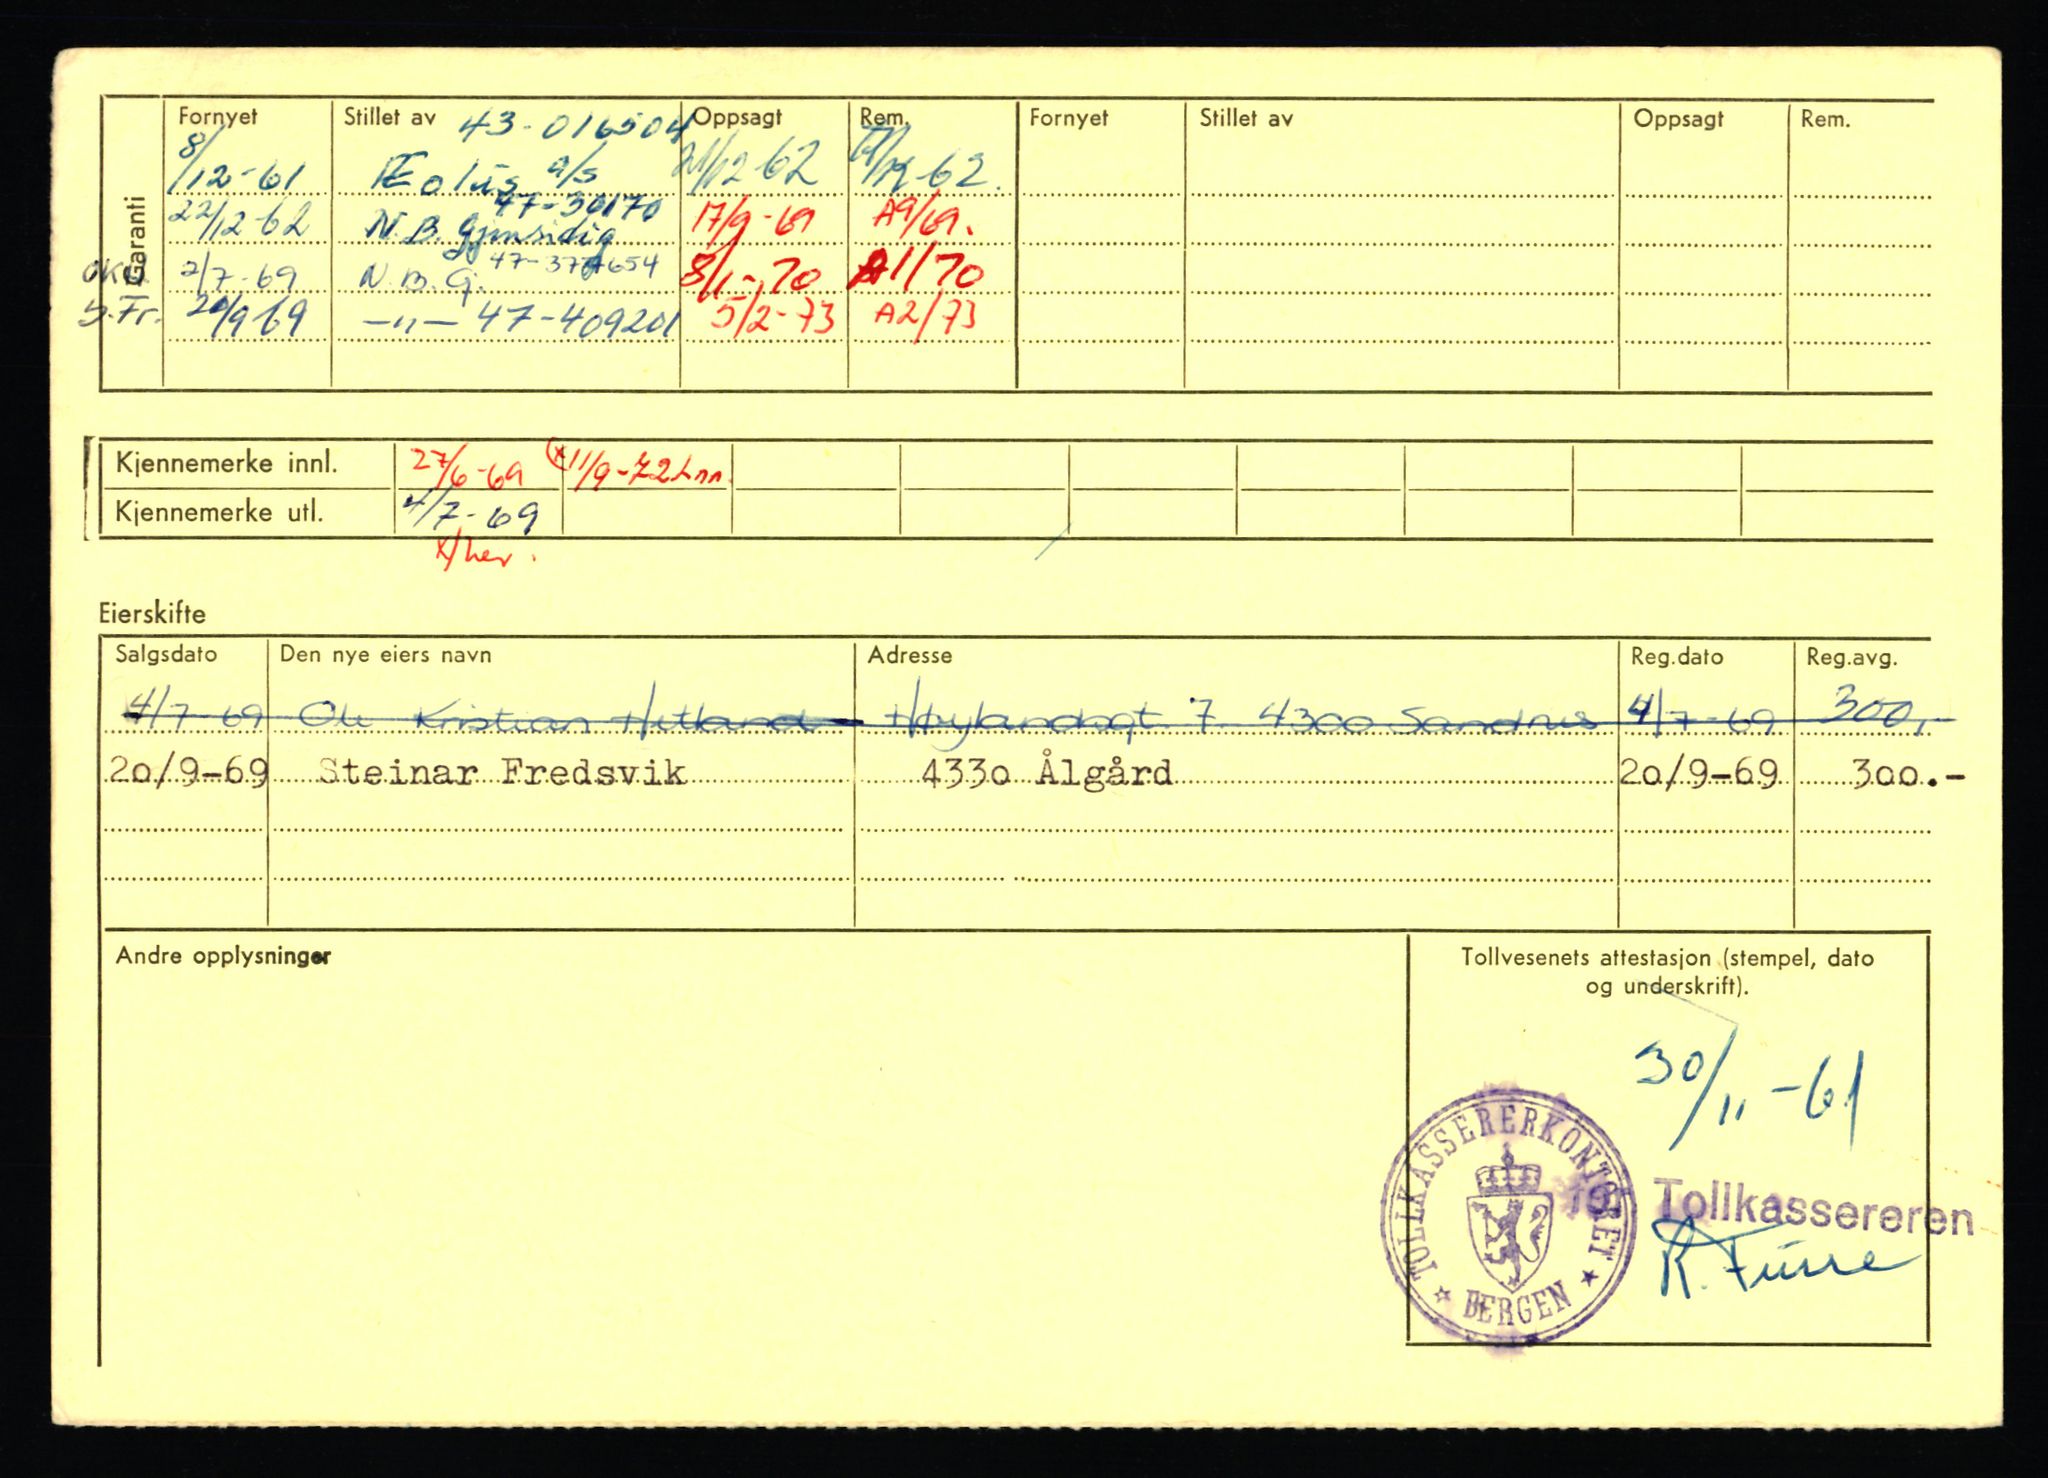 Garanti
Fornyet Stillet av 43-016504 Oppsagt Rem. Fornyet Stillet av Oppsagt Rem.
8/12-61 Æolus a/s /12-62 -62.
47-30170
22/12-62 N.B. Gjensidig 17/9-69 A9/69.
2/7-69 N.B.G. 47-377654 8/1-70 A1/70
S.Fr. 20/9 69 —"— 47-409201 5/2-73 A2/73
Kjennemerke innl. 27/6-69 (x 11/9-72 Lnn.
Kjennemerke utl. 4/7-69
x/her.
Eierskifte
Salgsdato Den nye eiers navn Adresse Reg.dato Reg.avg.
4/7 69 Ole Kristian Hetland Høylandsgt 7 4300 Sandnes 4/7-69 300,-
20/9-69 Steinar Fredsvik 4330 Ålgård 20/9-69 300.-
Andre opplysninger
Tollvesenets attestasjon (stempel, dato
og underskrift).
30/11-61
TOLLKASSERERKONTORET
BERGEN
Tollkassereren
K. Furre